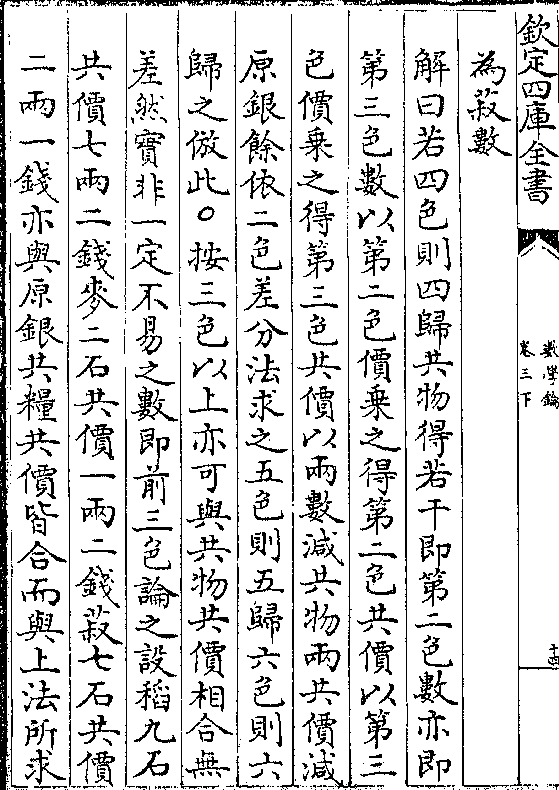 欽定四庫全書
數學鑰
卷三下
十四
為菽數
解曰若四色則四歸共物得若干即第二色數亦即
第三色數以第二色價乗之得第二色共價以第三
色價乗之得第三色共價以兩數減共物兩共價減
原銀餘依二色差分法求之五色則五歸六色則六
歸之倣此○按三色以上亦可與共物共價相合無
差然實非一定不易之數即前三色論之設稻九石
共價七兩二錢麥二石共價一兩二錢菽七石共價
二兩一錢亦與原銀共糧共價皆合而與上法所求